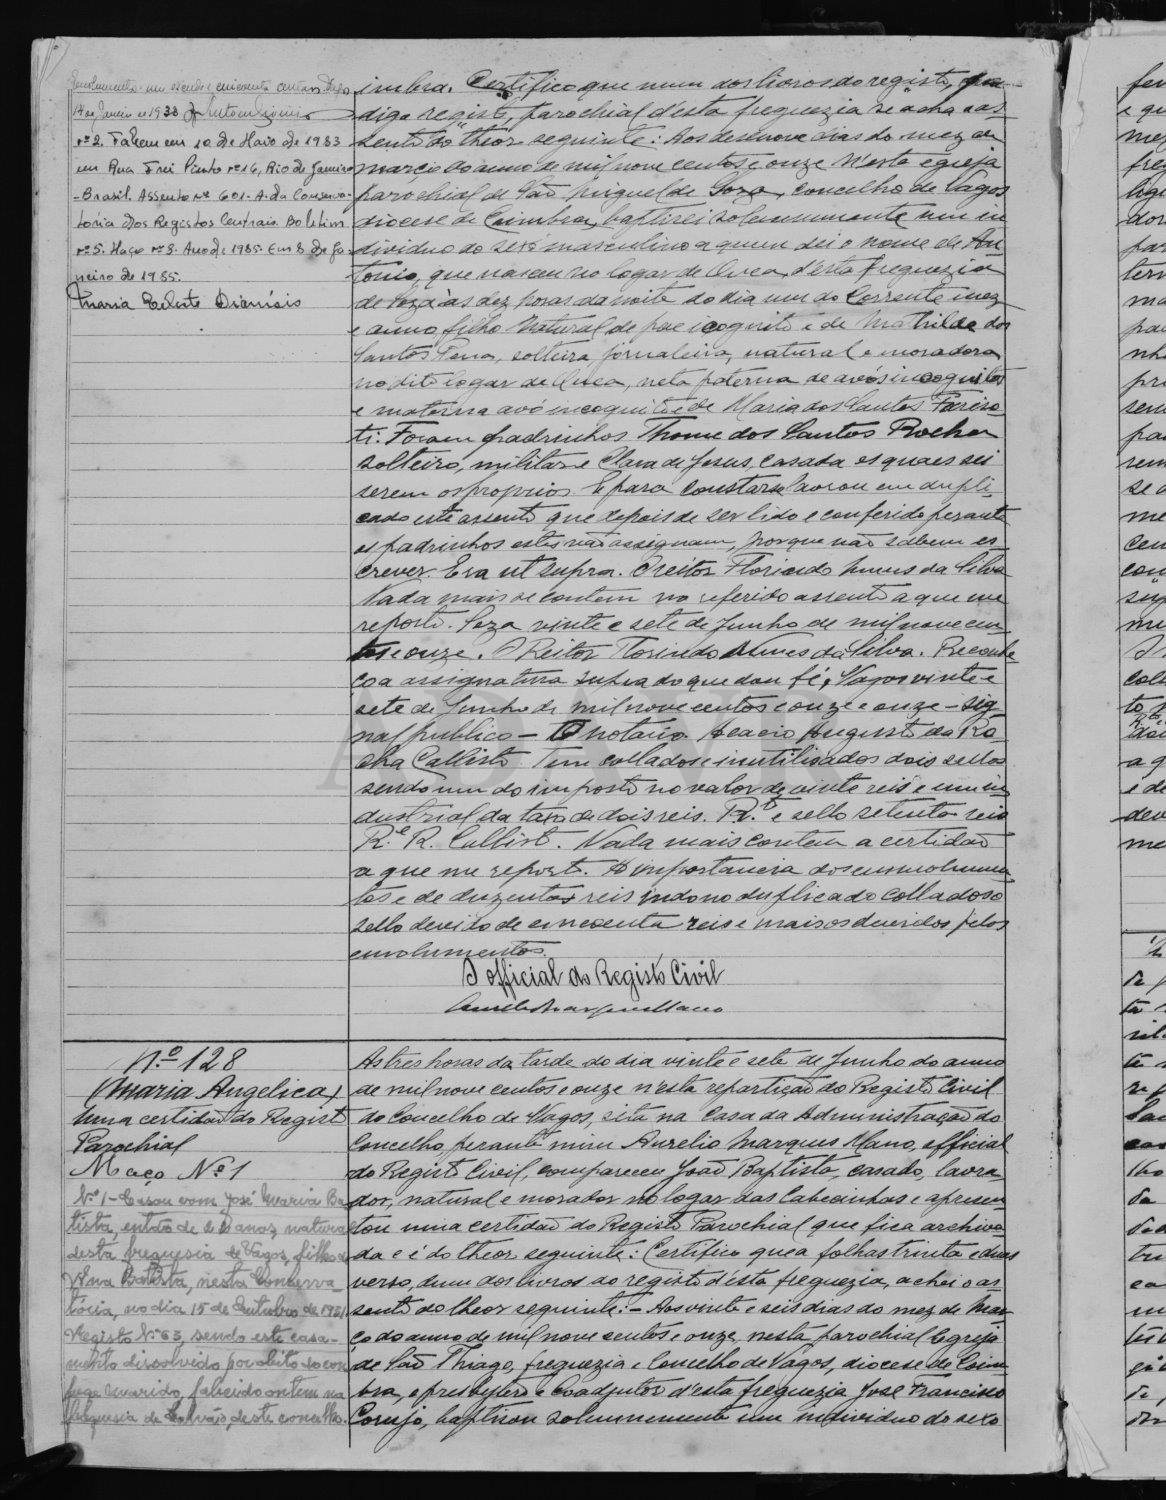 14 de Janeiro de 1938
nº 2. Faleceu em 10 de Maio de 1983
em Rua Frei Pinto nº 16, Rio de Janeiro
- Brasil. Assento nº 601-A da Conserva-
toria dos Registos Centrais. Boletim
nº 5. Maço nº 3. Ano de 1985. Em 8 de Ja-
neiro de 1985.
Maria Celeste Dionísio
imbra. Certifico que num dos livros do registo, 
digo registo, parochial d'esta freguezia se acha o as-
sento do theor seguinte: Aos desenove dias do mez de
março do anno de mil nove centos e onze n'esta egreja
parochial de São Miguel de Soza, concelho de Vagos
diocese de Coimbra, baptisei solemnemente um in
dividuo do sexo masculino a quem dei o nome de An-
tonio, que nasceu no logar de Ouca, d'esta freguezia
de Soza ás dez horas da noite do dia um do corrente mez
e anno, filho natural de pae incognito e de Mathilde dos
Santos Pena, solteira, jornaleira, natural e moradora
no dito logar de Ouca, neto paterno de avós incognitos
e materna avô incognito e de Maria dos Santos
Foram padrinhos Thome dos Santos Rocha
solteiro, militar e Clara de Jesus, casada os quaes sei
serem os proprios. E para constar se lavrou em dupli-
cado este assento que depois de ser lido e conferido perante
os padrinhos estes não assignam, porque não sabem es-
crever. Era ut supra. O reitor Florindo Nunes da Silva
Nada mais se contem no referido assento a que me
reporto. Soza vinte e sete de Junho de mil nove cen-
tos e onze. O Reitor Florindo Nunes da Silva. Reconhe
ço a assignatura supra do que dou fé, Vagos vinte e
sete de Junho de mil nove centos e onze e onze - sig-
nal publico - O notario. Acacio Augusto da Ro-
cha Callisto. Tem collados e inutilisados dois sellos
sendo um do imposto no valor de vinte reis e um in-
dustrial da taxa de dois reis. R.to e sello setenta reis
R.e R. Callisto. Nada mais contem a certidão
a que me reporto. A importancia dos emolumen-
tos e de duzentos reis indo no duplicado collado o
sello devido de cincoenta reis e mais os devidos pelos
emolumentos.
O official do Registo Civil
Aurelio Marques Mano
N.º 128
(Maria Angelica)
Uma certidão do Registo
Parochial
Maço Nº 1
Nº 1 - Casou com José Maria Ba
tista, então de 20 anos, natural
desta freguesia de Vagos, filho de
Ana Batista, nesta Conserva-
tória, no dia 15 de Outubro de 1931
Registo Nº 63, sendo este casa-
mento dissolvido por obito do con
juge marido, falecido ontem na
freguesia de Calvão, deste concelho.
As tres horas da tarde do dia vinte e sete de Junho do anno
de mil nove centos e onze n'esta repartição do Registo Civil
do Concelho de Vagos, sita na Casa da Administração do
Concelho, perante mim Aurelio Marques Mano, official
do Registo Civil, compareceu João Baptista, casado, lavra-
dor, natural e morador no logar das Cabecinhas e apresen-
tou uma certidão do Registo Parochial que fica archiva-
da e é do theor seguinte: Certifico que a folhas trinta e duas
verso, d'um dos livros do registo d'esta freguezia, achei o as-
sento do theor seguinte: - Aos vinte e seis dias do mez de Mar-
ço do anno de mil nove centos e onze, nesta parochial Egreja
de São Thiago, freguezia e Concelho de Vagos, diocese de Coim
bra, o presbytero e Coadjutor d'esta freguezia José Francisco
Corujo, baptisou solemnemente um individuo do sexo